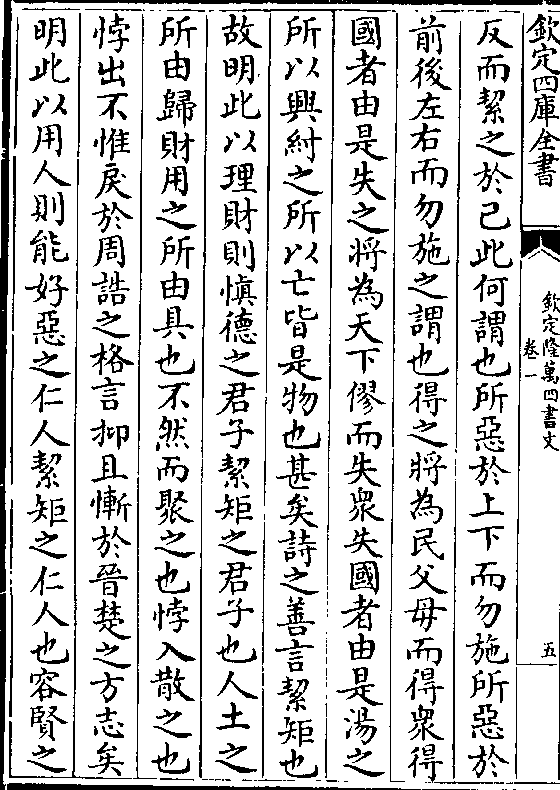 欽定四庫全書
欽定隆萬四書文
卷一
五
反而絜之於己此何謂也所惡於上下而勿施所惡於
前後左右而勿施之謂也得之將為民父母而得衆得
國者由是失之將為天下僇而失衆失國者由是湯之
所以興紂之所以亡皆是物也甚矣詩之善言絜矩也
故明此以理財則慎德之君子絜矩之君子也人土之
所由歸財用之所由具也不然而聚之也悖入散之也
悖出不惟戾於周誥之格言抑且慚於晉楚之方志矣
明此以用人則能好惡之仁人絜矩之仁人也容賢之